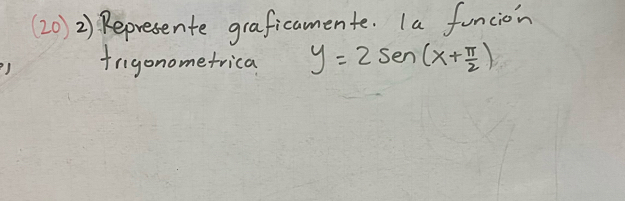 (20) 2) Represente graficamente. la función
trigonometrica y = 2 sen (x+π/2)